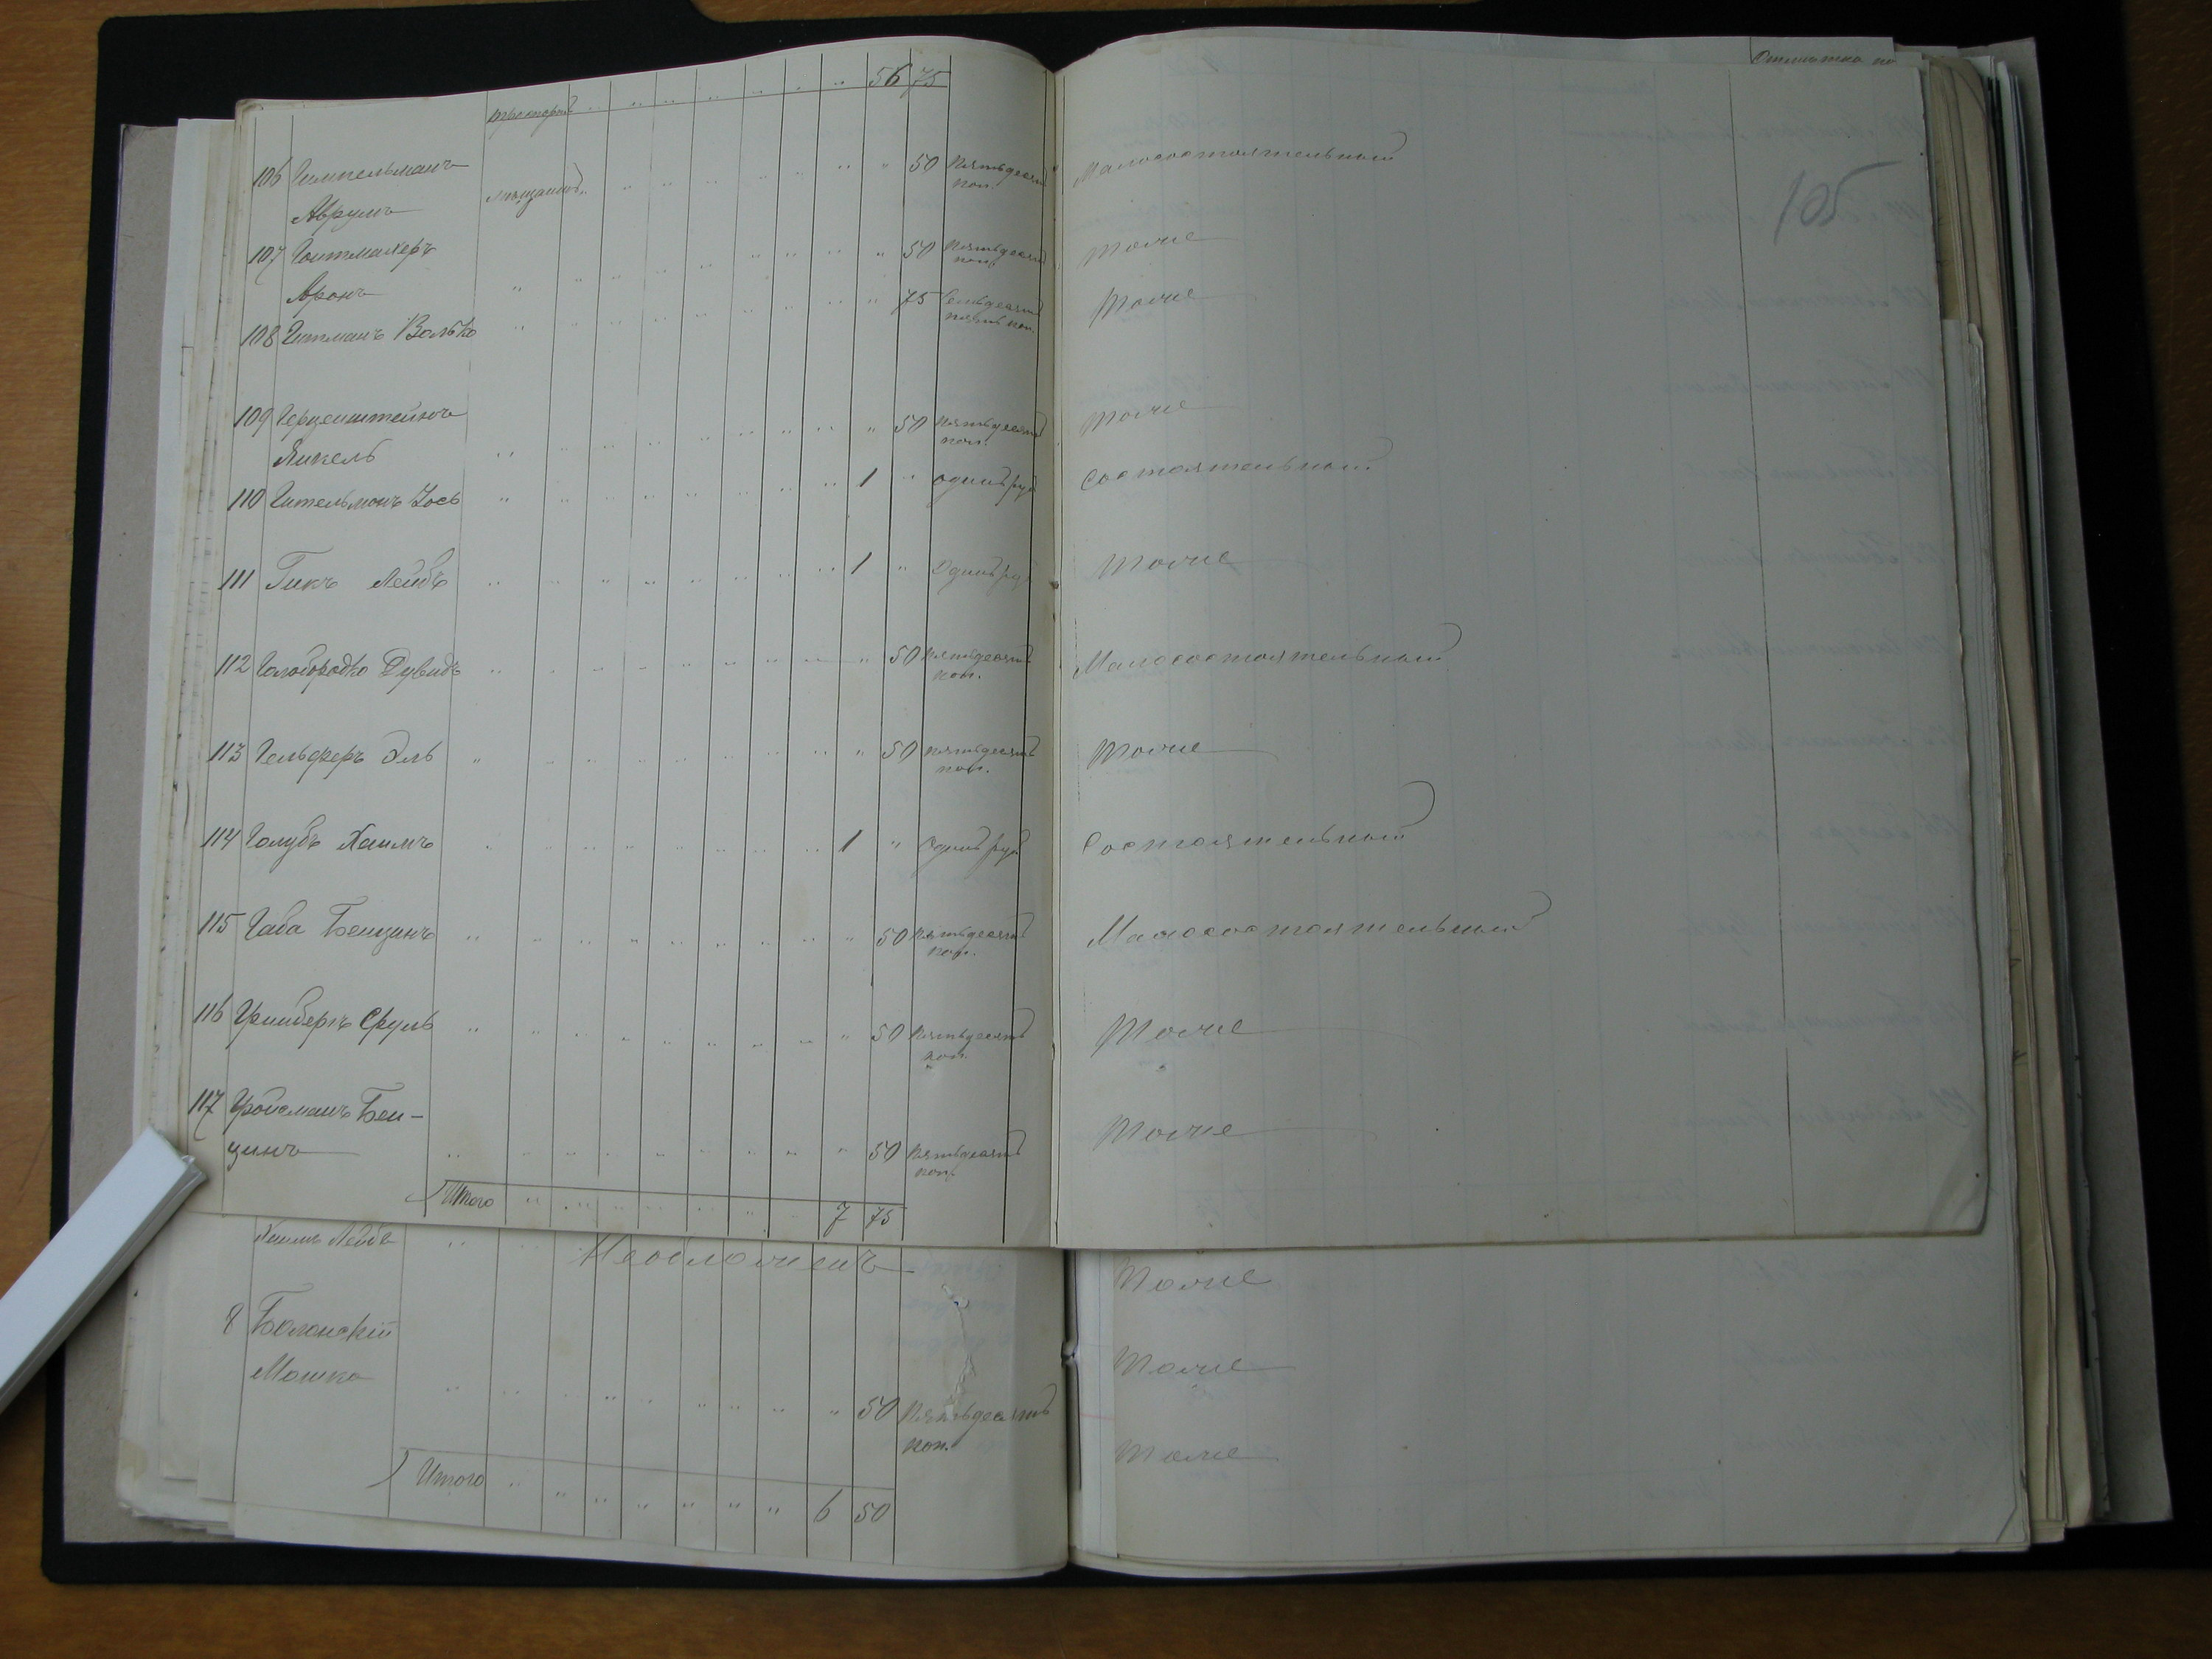 56 75
106 Гимпельманъ мѣщанинъ 50 Пятьдесятъ коп. Малосостоятельный
Аврумъ
105
107 Гоитмахеръ 50 Пятьдесятъ коп. Тоже
Аронъ
108 Гитманъ Волько 75 Семьдесятъ пять коп. Тоже
109 Герценштейнъ 50 Пятьдесятъ коп. Тоже
Янкель
110 Гительманъ Іось 1 " одинъ руб Состоятельный
111 Гикъ Лейбъ 1 " Одинъ руб Тоже
112 Голобродко Дувидъ 50 Пятьдесятъ коп. Малосостоятельный
113 Гельферъ Эль 50 Пятьдесятъ коп. Тоже
114 Голубъ Хаимъ 1 " Одинъ руб Состоятельный
115 Габа Бенционъ 50 Пятьдесятъ коп. Малосостоятельный
116 Гринбергъ Сруль 50 Пятьдесятъ коп. Тоже
117 Гройсманъ Бен-
ціонъ 50 Пятьдесятъ коп. Тоже
Итого 7 75
Хаимъ Лейба Необложенъ Тоже
8 Белянскій Тоже
Мошко 50 Пятьдесятъ
коп. Тоже
Итого 6 50